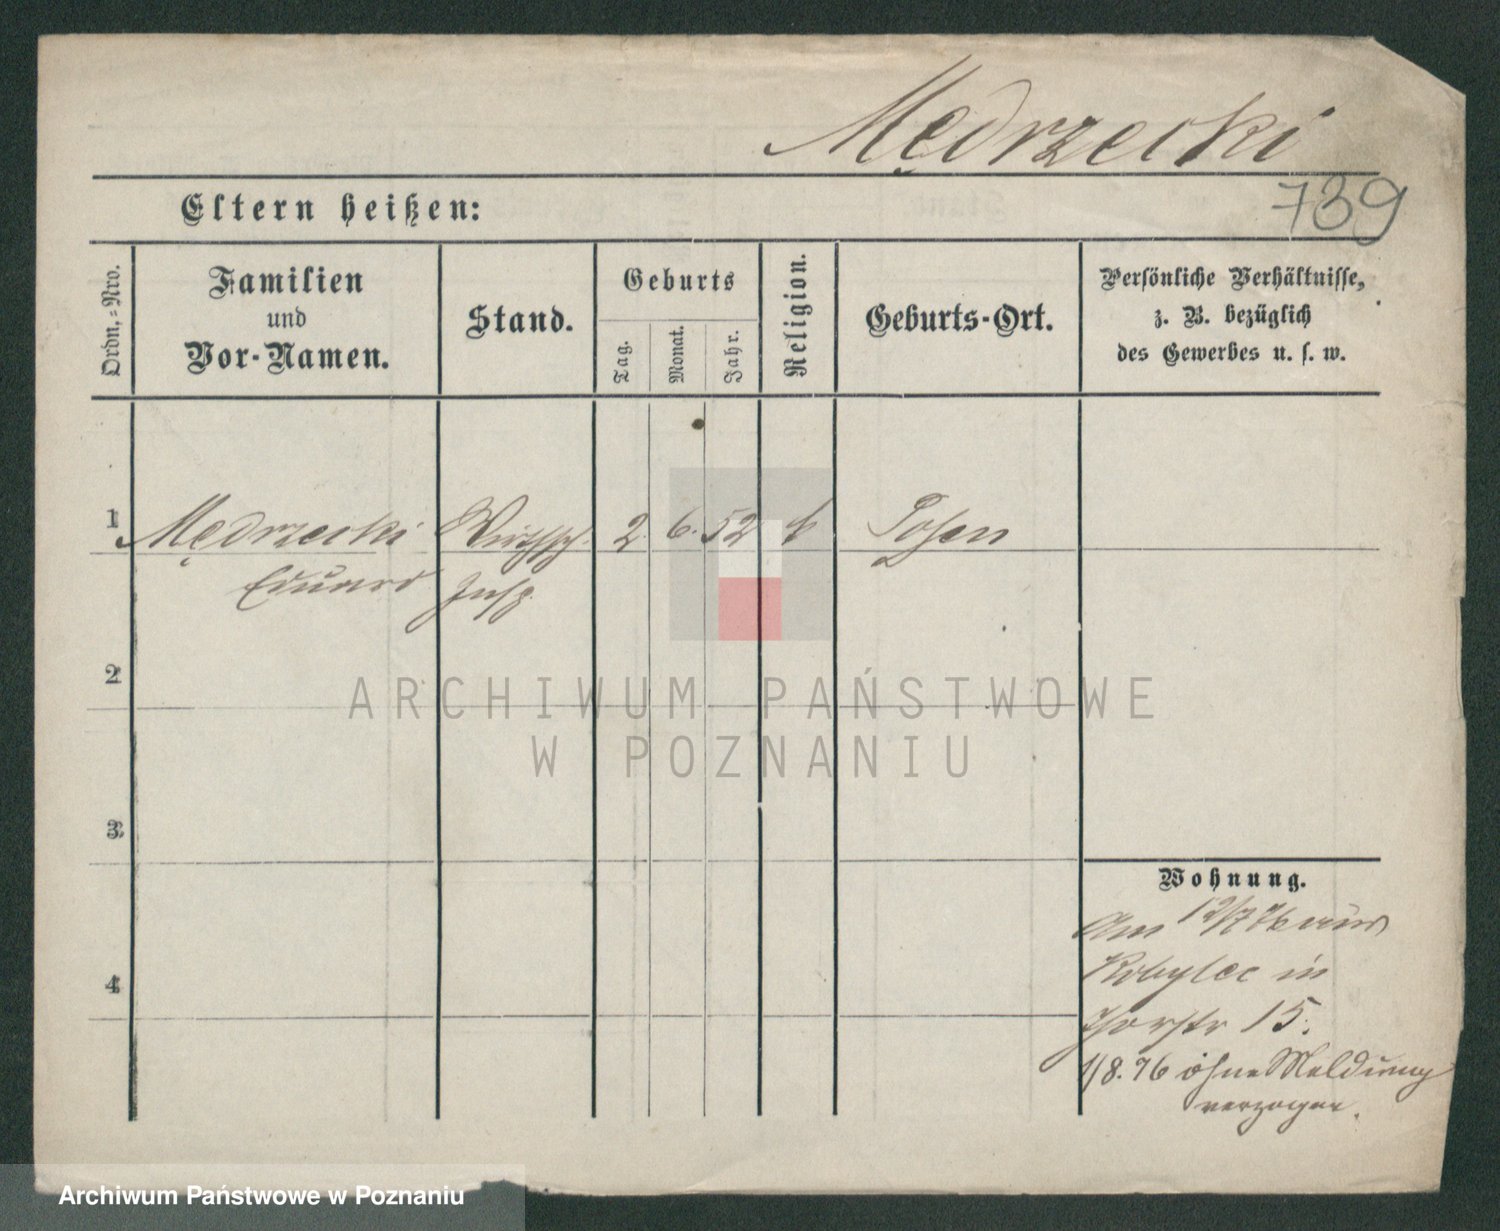 Mędrzecki
739
Eltern heißen:
Ordn.-Nro.
Familien
und
Vor-Namen.
Stand.
Geburts
Tag.
Monat.
Jahr.
Religion.
Geburts-Ort.
Persönliche Verhältnisse,
z. B. bezüglich
des Gewerbes u. s. w.
1 Mędrzecki Wirthsch. 2. 6. 52 k Posen
Eduard Insp.
2
3
4
Wohnung.
Am 12/7 76 aus
Kobylec in
Thorstr 15.
1/8. 76 ohne Meldung
verzogen.
ARCHIWUM PAŃSTWOWE
W POZNANIU
Archiwum Państwowe w Poznaniu